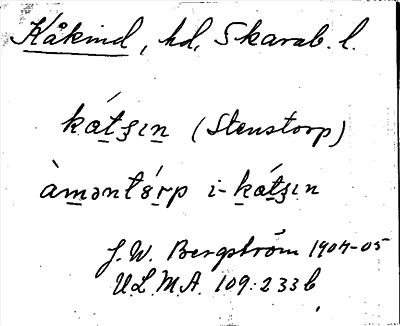 Kåkind, hd, Skarab. l.
kɷ́t̲ʂɩn̲ (Stenstorp)
àm̲əntɞ́r̲p i- k̲ɷ́t̲ʂɩn
J. W. Bergström 1904-05
U.L.M.A. 109:233b